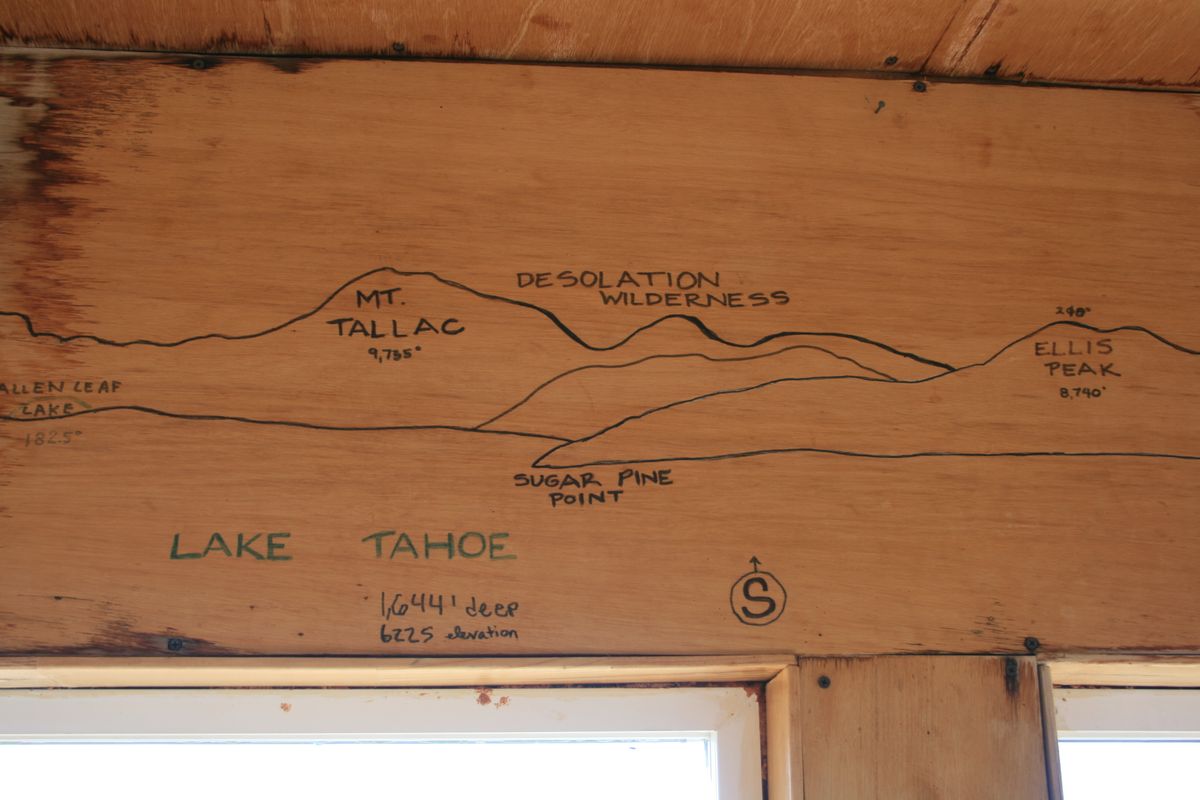 DESOLATION
WILDERNESS
MT.
TALLAC
9,735°
ELLIS
PEAK
8,740'
ALLEN LEAF
LAKE
182.5°
SUGAR PINE
POINT
LAKE TAHOE
1,644' deep
6225 elevation
S